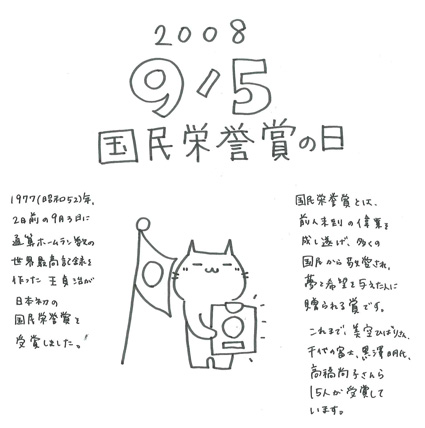 2008
9/5
国民栄誉賞の日
1977(昭和52)年、
2日前の9月3日に
通算ホームラン数の
世界最高記録を
作った 王貞治が
日本初の
国民栄誉賞を
受賞しました。!
国民栄誉賞とは、
前人未到の偉業を
成し遂げ、多くの
国民から敬愛され、
夢と希望を与えた人に
贈られる賞です。
これまで、美空ひばりさん、
千代の富士、黒澤明氏、
高橋尚子さんら
15人が受賞して
います。